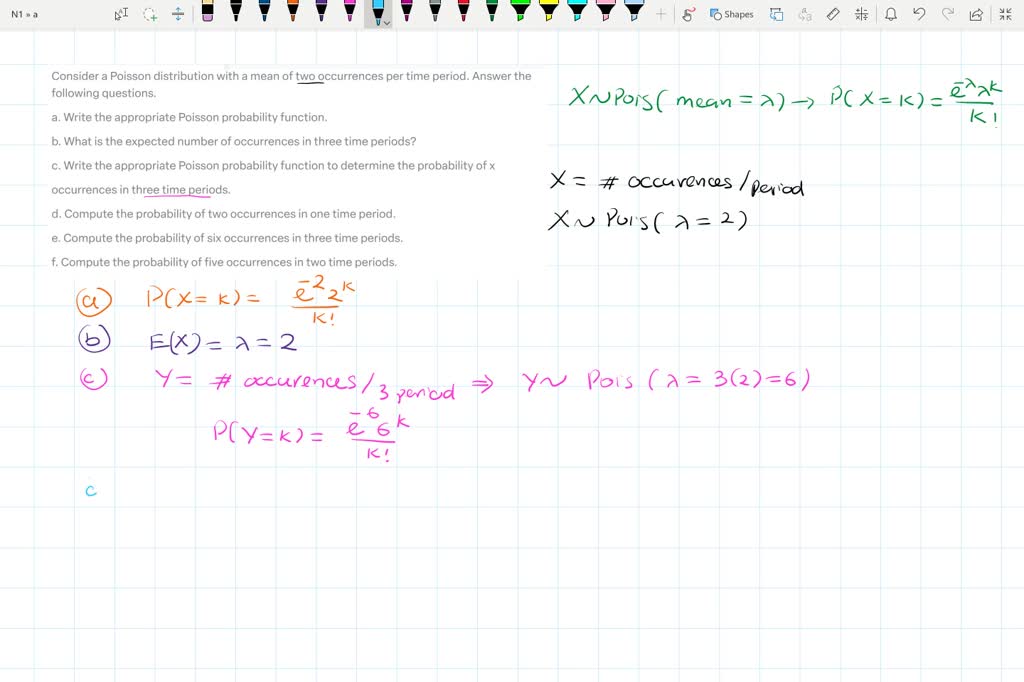 N1 » a
Shapes
Consider a Poisson distribution with a mean of two occurrences per time period. Answer the
following questions.
a. Write the appropriate Poisson probability function.
b. What is the expected number of occurrences in three time periods?
c. Write the appropriate Poisson probability function to determine the probability of x
occurrences in three time periods.
d. Compute the probability of two occurrences in one time period.
e. Compute the probability of six occurrences in three time periods.
f. Compute the probability of five occurrences in two time periods.
X~Pois( mean = λ) → P( X = K) = e^-λ λ^K / K!
X = # occurences / period
X~ Pois( λ = 2)
(a) P(X = K) = e^-2 2^K / K!
(b) E(X) = λ = 2
(c) Y = # occurences / 3 period ⇒ Y~ Pois ( λ = 3(2) = 6)
P(Y=K) = e^-6 6^K / K!
c